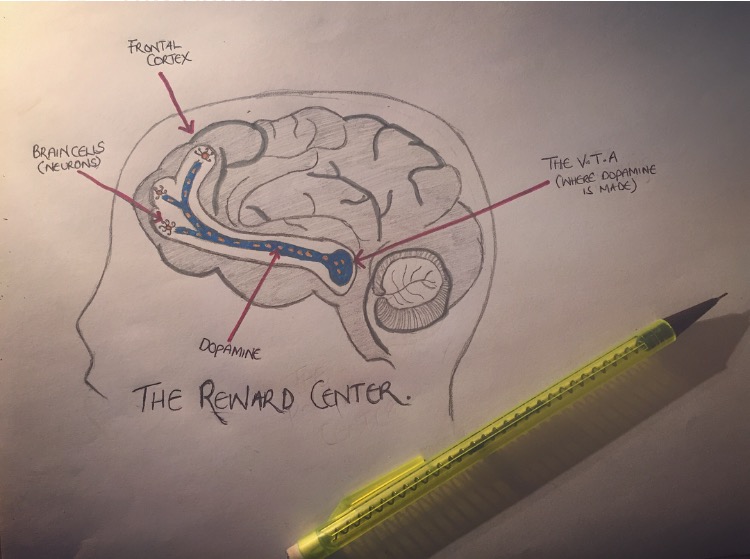 FRONTAL
CORTEX
BRAIN CELLS
(NEURONS)
THE V.T.A
(WHERE DOPAMINE
IS MADE)
DOPAMINE
THE REWARD CENTER.